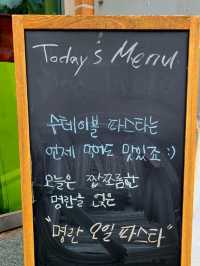 Today's Menu
수테이블 파스타는
언제 먹어도 맛있죠 :)
오늘은 짭쪼름한
명란을 넣은
"명란 오일 파스타"